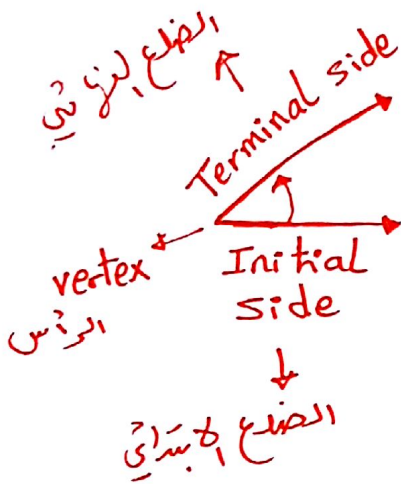 الضلع النهائي
Terminal side
vertex
الرأس
Initial
side
الضلع الابتدائي